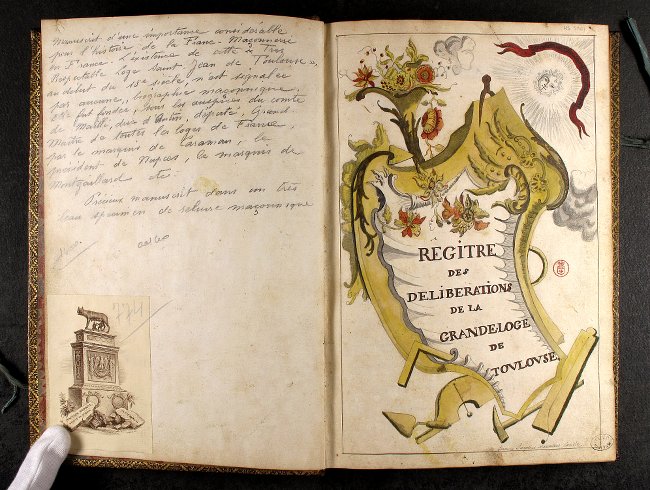 Manuscrit d'une importance considérable
pour l'histoire de la Franc-Maçonnerie
en France. L'existence de cette "Très
Respectable Loge Saint Jean de Toulouse",
au début du 18e siècle n'est signalée
par aucune bibliographie maçonnique,
elle fut fondée, sous les auspices du comte
de Maillé, duc d'Antin, député, Grand
Maître de toutes les loges de France,
par le marquis de Caraman, le
président de Nupces, le marquis de
Montgaillard etc.
Précieux manuscrit dans un très
beau spécimen de reliure maçonnique
774
REGITRE
DES
DELIBERATIONS
DE LA
GRANDE LOGE
DE
TOVLOVSE.